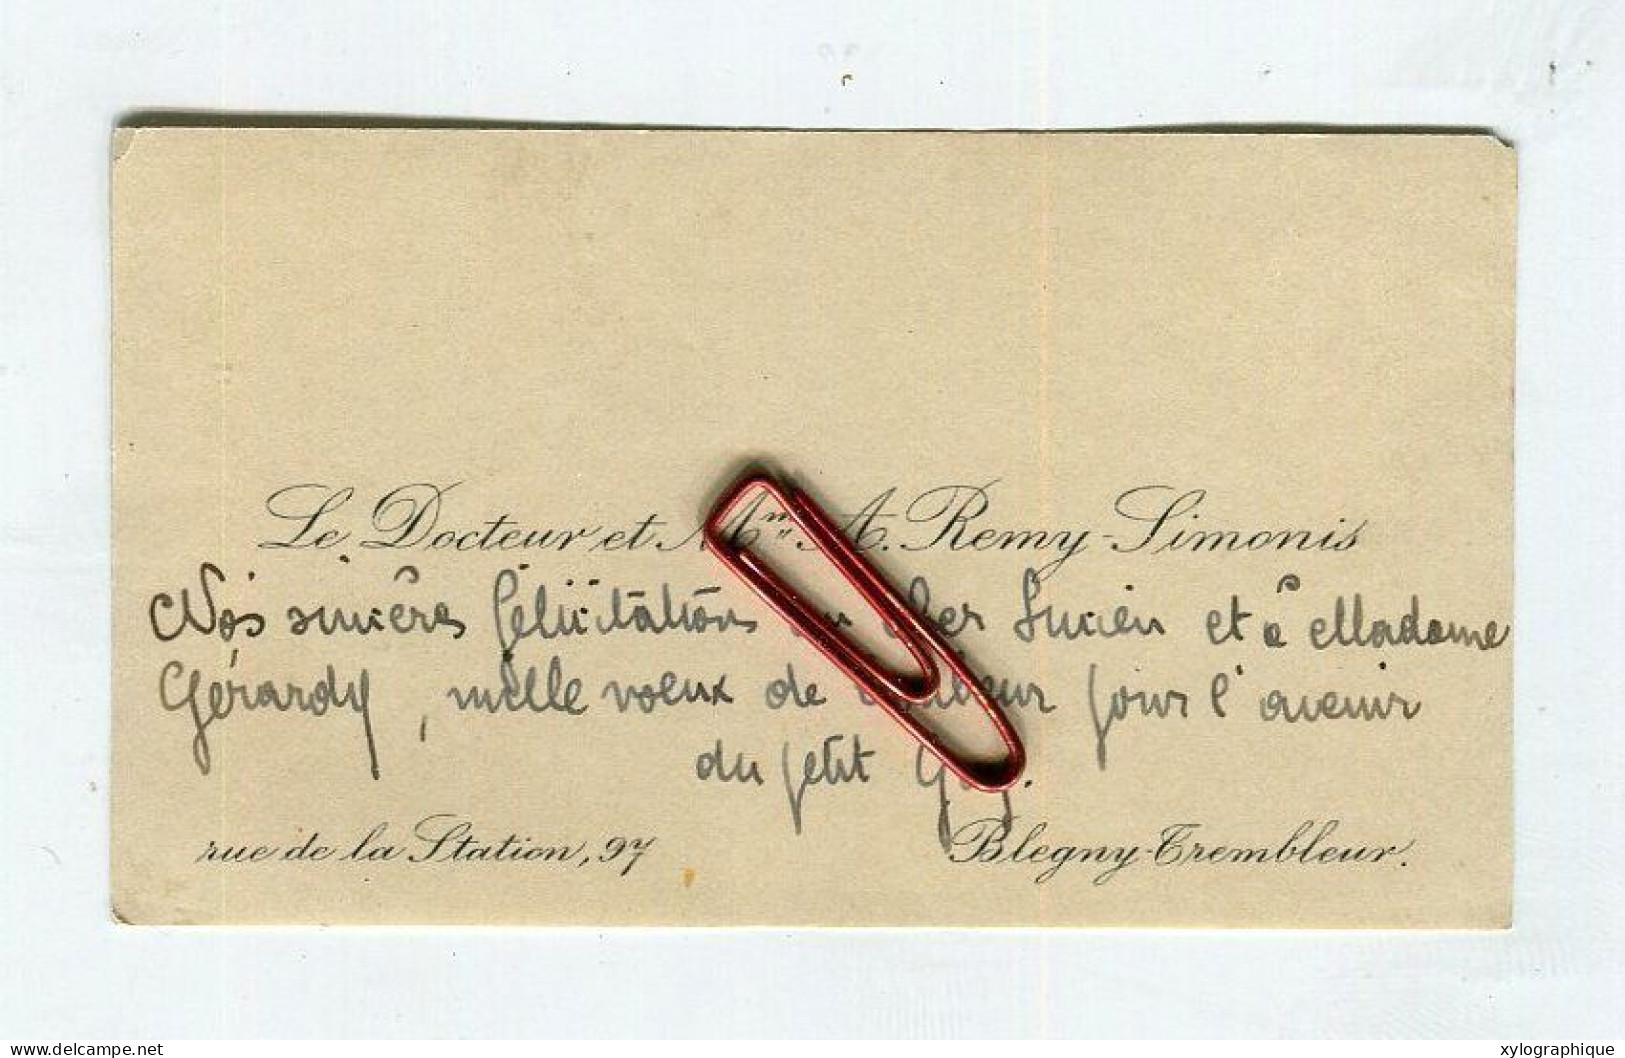 Le Docteur et Mme A. Remy-Simonis
Nos sincères félicitations au cher Lucien et à Madame
Gérardy, mille voeux de bonheur pour l'avenir
du petit Guy.
rue de la Station, 97 Blegny-Trembleur.
delcampe.net xylographique